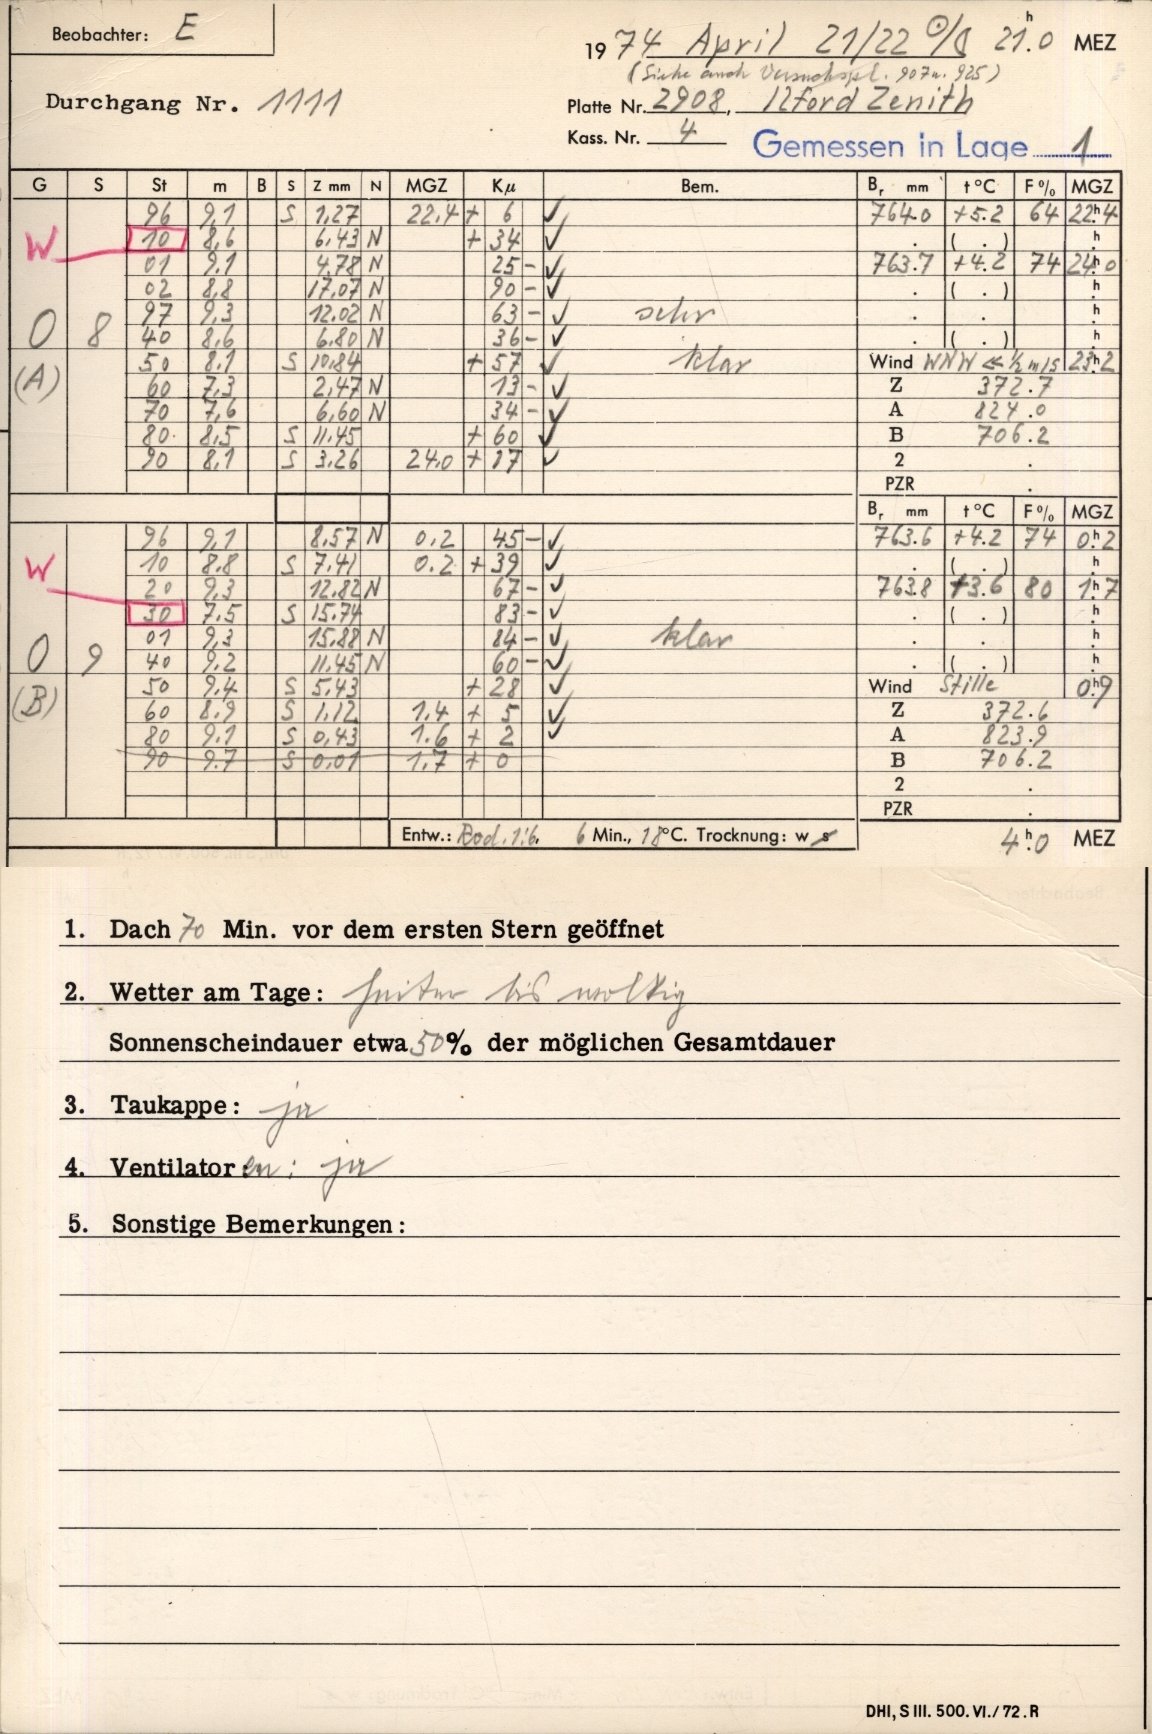 Beobachter: E
1974 April 21/22 ☉/☾ 21ʰ.0 MEZ
(Siehe auch Versuchspl. 907 u. 925)
Durchgang Nr. 1111
Platte Nr. 2908, Ilford Zenith
Kass. Nr. 4
Gemessen in Lage 1
G S St m B S Z mm N MGZ Kμ Bem. Bᵣ mm t °C F % MGZ
96 9,1 S 1,27 22,4 + 6 ✓ 764.0 +5.2 64 22ʰ.4
W 10 8,6 6,43 N + 34 ✓ . ( . ) ʰ.
01 9,1 4,78 N 25 - ✓ 763.7 +4.2 74 24ʰ.0
02 8,8 17,07 N 90 - ✓ . ( . ) ʰ.
0 8 97 9,3 12,02 N 63 - ✓ sehr . . ʰ.
40 8,6 6,80 N 36 - ✓ . ( . ) ʰ.
(A) 50 8,1 S 10,84 + 57 ✓ klar Wind WNW ≪ ½ m/s 23ʰ.2
60 7,3 2,47 N 13 - ✓ Z 372.7
70 7,6 6,60 N 34 - ✓ A 824.0
80 8,5 S 11,45 + 60 ✓ B 706.2
90 8,1 S 3,26 24,0 + 17 ✓ 2 .
PZR .
Bᵣ mm t °C F % MGZ
96 9,1 8,57 N 0,2 45 - ✓ 763.6 +4.2 74 0ʰ.2
W 10 8,8 S 7,41 0,2 + 39 ✓ . ( . ) ʰ.
20 9,3 12,82 N 67 - ✓ 763.8 +3.6 80 1ʰ.7
30 7,5 S 15,74 83 - ✓ . ( . ) ʰ.
01 9,3 15,88 N 84 - ✓ klar . . ʰ.
0 9 40 9,2 11,45 N 60 - ✓ . ( . ) ʰ.
(B) 50 9,4 S 5,43 + 28 ✓ Wind Stille 0ʰ.9
60 8,9 S 1,12 1,4 + 5 ✓ Z 372.6
80 9,1 S 0,43 1,6 + 2 ✓ A 823.9
90 9,7 S 0,01 1,7 + 0 B 706.2
2 .
PZR .
Entw.: Rod. 1:6. 6 Min., 18°C. Trocknung: w s 4ʰ.0 MEZ
1. Dach 70 Min. vor dem ersten Stern geöffnet
2. Wetter am Tage: heiter bis wolkig
Sonnenscheindauer etwa 50% der möglichen Gesamtdauer
3. Taukappe: ja
4. Ventilatoren: ja
5. Sonstige Bemerkungen:
DHI, S III. 500. VI./72. R